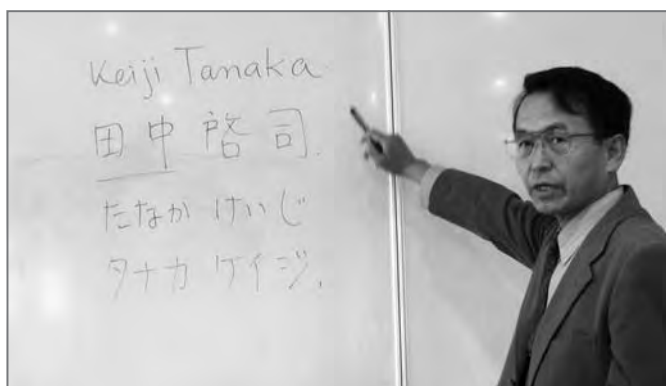 Keiji Tanaka
田中 啓司.
たなか けいじ
タナカ ケイジ.